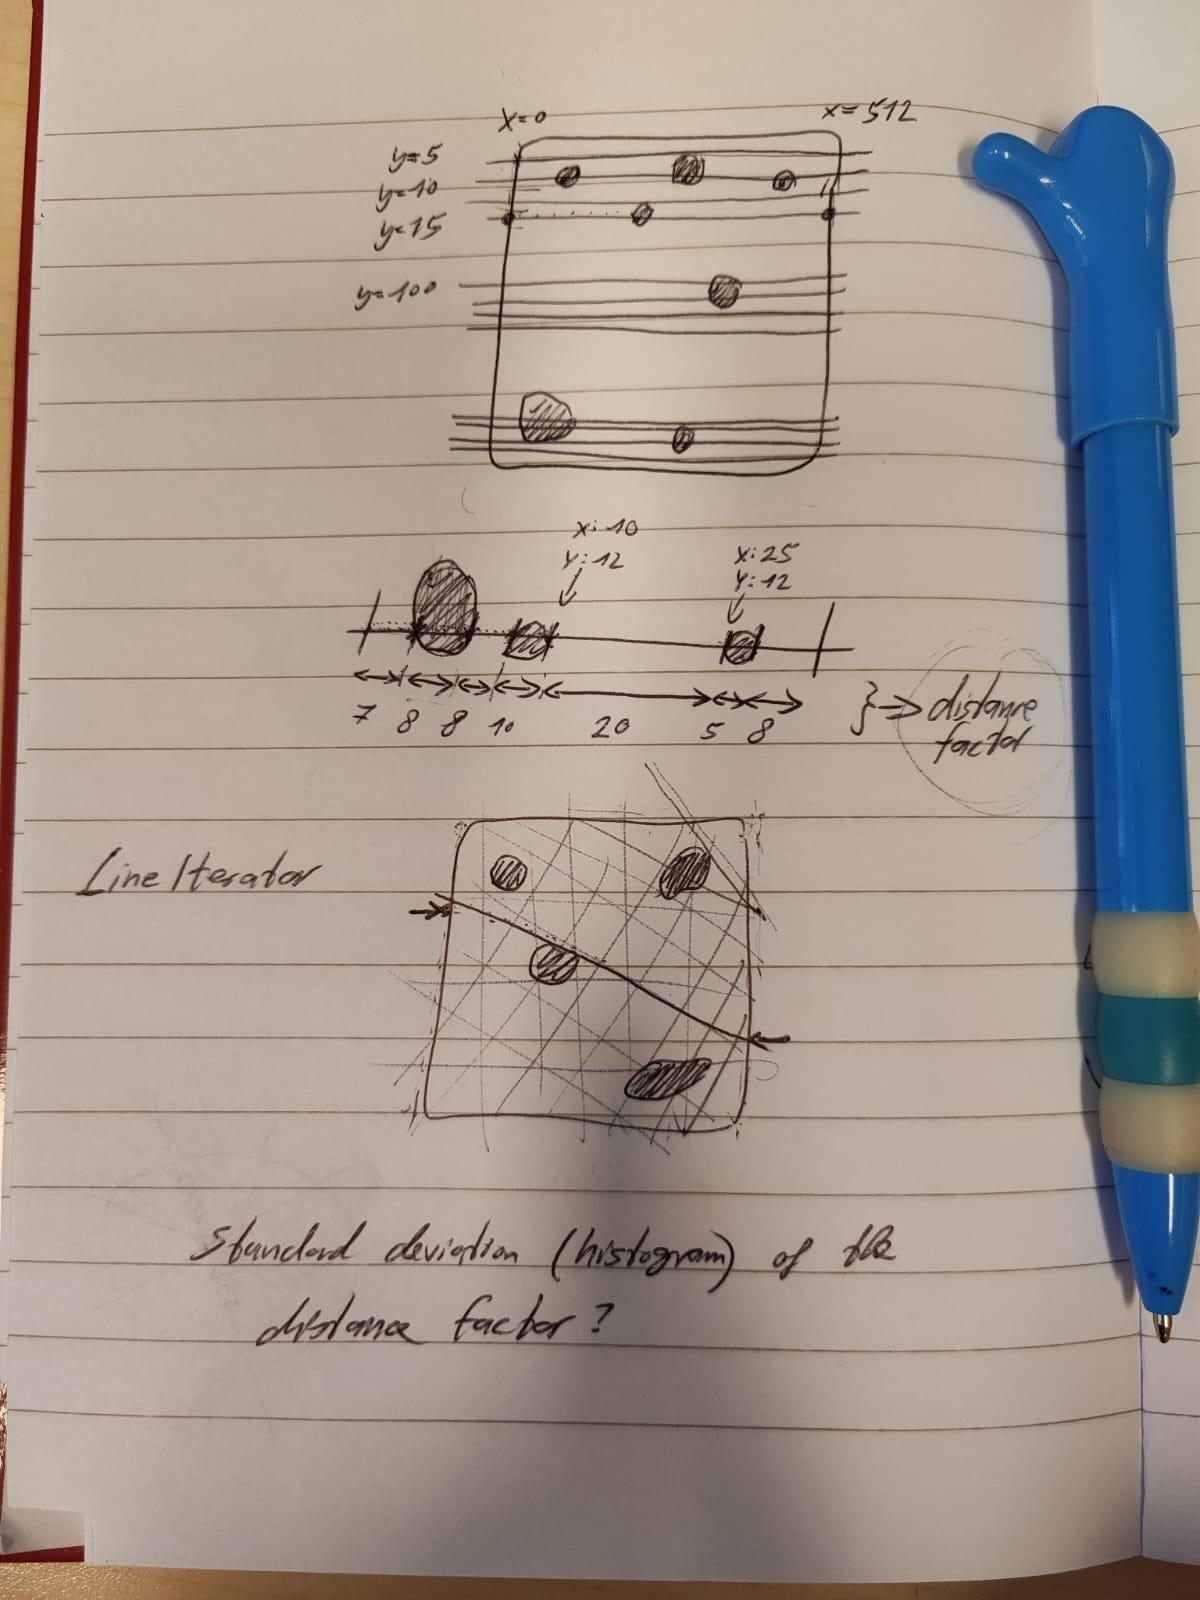 x=0 x=512
y=5
y=10
y=15
y=100
x:10
y:12
x:25
y:12
7 8 8 10 20 5 8
} => distance
factor
Line Iterator
Standard deviation (histogram) of the
distance factor?